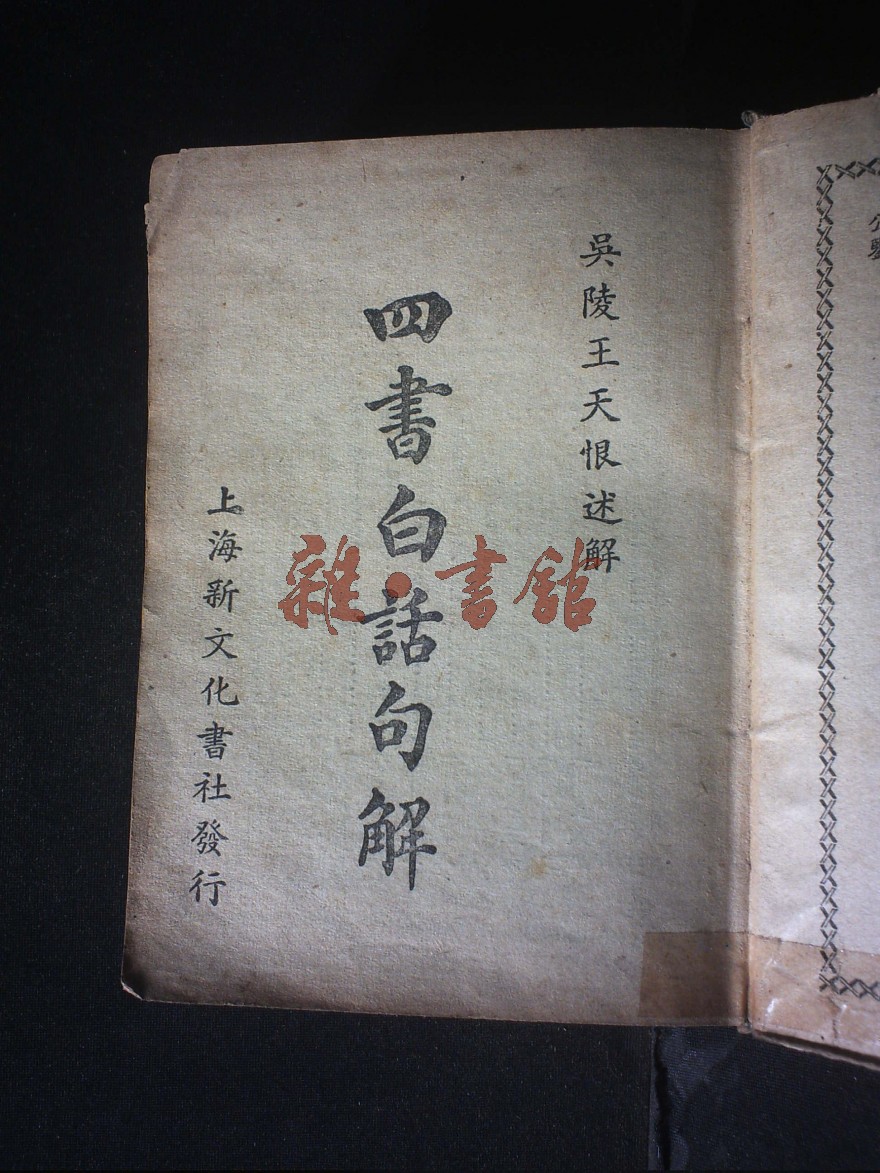 吳陵王天恨述解
四書白話句解
上海新文化書社發行
雜·書館